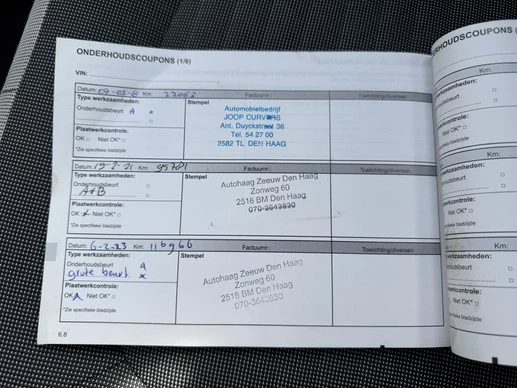 ONDERHOUDSCOUPONS (1/6)
VIN:
Datum: Km: Factuurnr.: Toelichting/diversen
Type werkzaamheden: Stempel
Onderhoudsbeurt A x
Automobielbedrijf
JOOP CURVERS
Ant. Duyckstraat 36
Tel. 54 27 00
2582 TL DEN HAAG
Plaatwerkcontrole:
OK □ Niet OK* □
*Zie specifieke bladzijde
Datum: Km: 95721 Factuurnr.: Toelichting/diversen
Type werkzaamheden: Stempel
Onderhoudsbeurt □
A+B
Autohaag Zeeuw Den Haag
Zonweg 60
2516 BM Den Haag
070-3643830
Plaatwerkcontrole:
OK Niet OK* □
*Zie specifieke bladzijde
Datum: 6-2-23 Km: 116966 Factuurnr.: Toelichting/diversen
Type werkzaamheden: Stempel
Onderhoudsbeurt A
grote beurt x
Autohaag Zeeuw Den Haag
Zonweg 60
2516 BM Den Haag
070-3643830
Plaatwerkcontrole:
OK Niet OK* □
*Zie specifieke bladzijde
6.8
RHOUDSCOUPONS
Km:
rkzaamheden:
dsbeurt □
rkcontrole:
Niet OK* □
fieke bladzijde
Km:
rkzaamheden:
udsbeurt □
erkcontrole:
Niet OK* □
cifieke bladzijde
Km:
erkzaamheden:
houdsbeurt □
werkcontrole:
Niet OK* □
pecifieke bladzijde